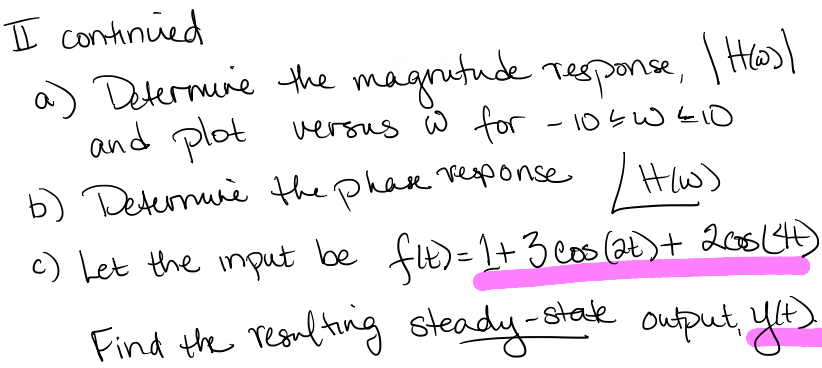 II continued
a) Determine the magnitude response, |H(ω)|
and plot versus ω for -10 ≤ ω ≤ 10
b) Determine the phase response ∠H(ω)
c) Let the input be f(t) = 1 + 3 cos(2t) + 2cos(4t)
Find the resulting steady-state output, y(t).